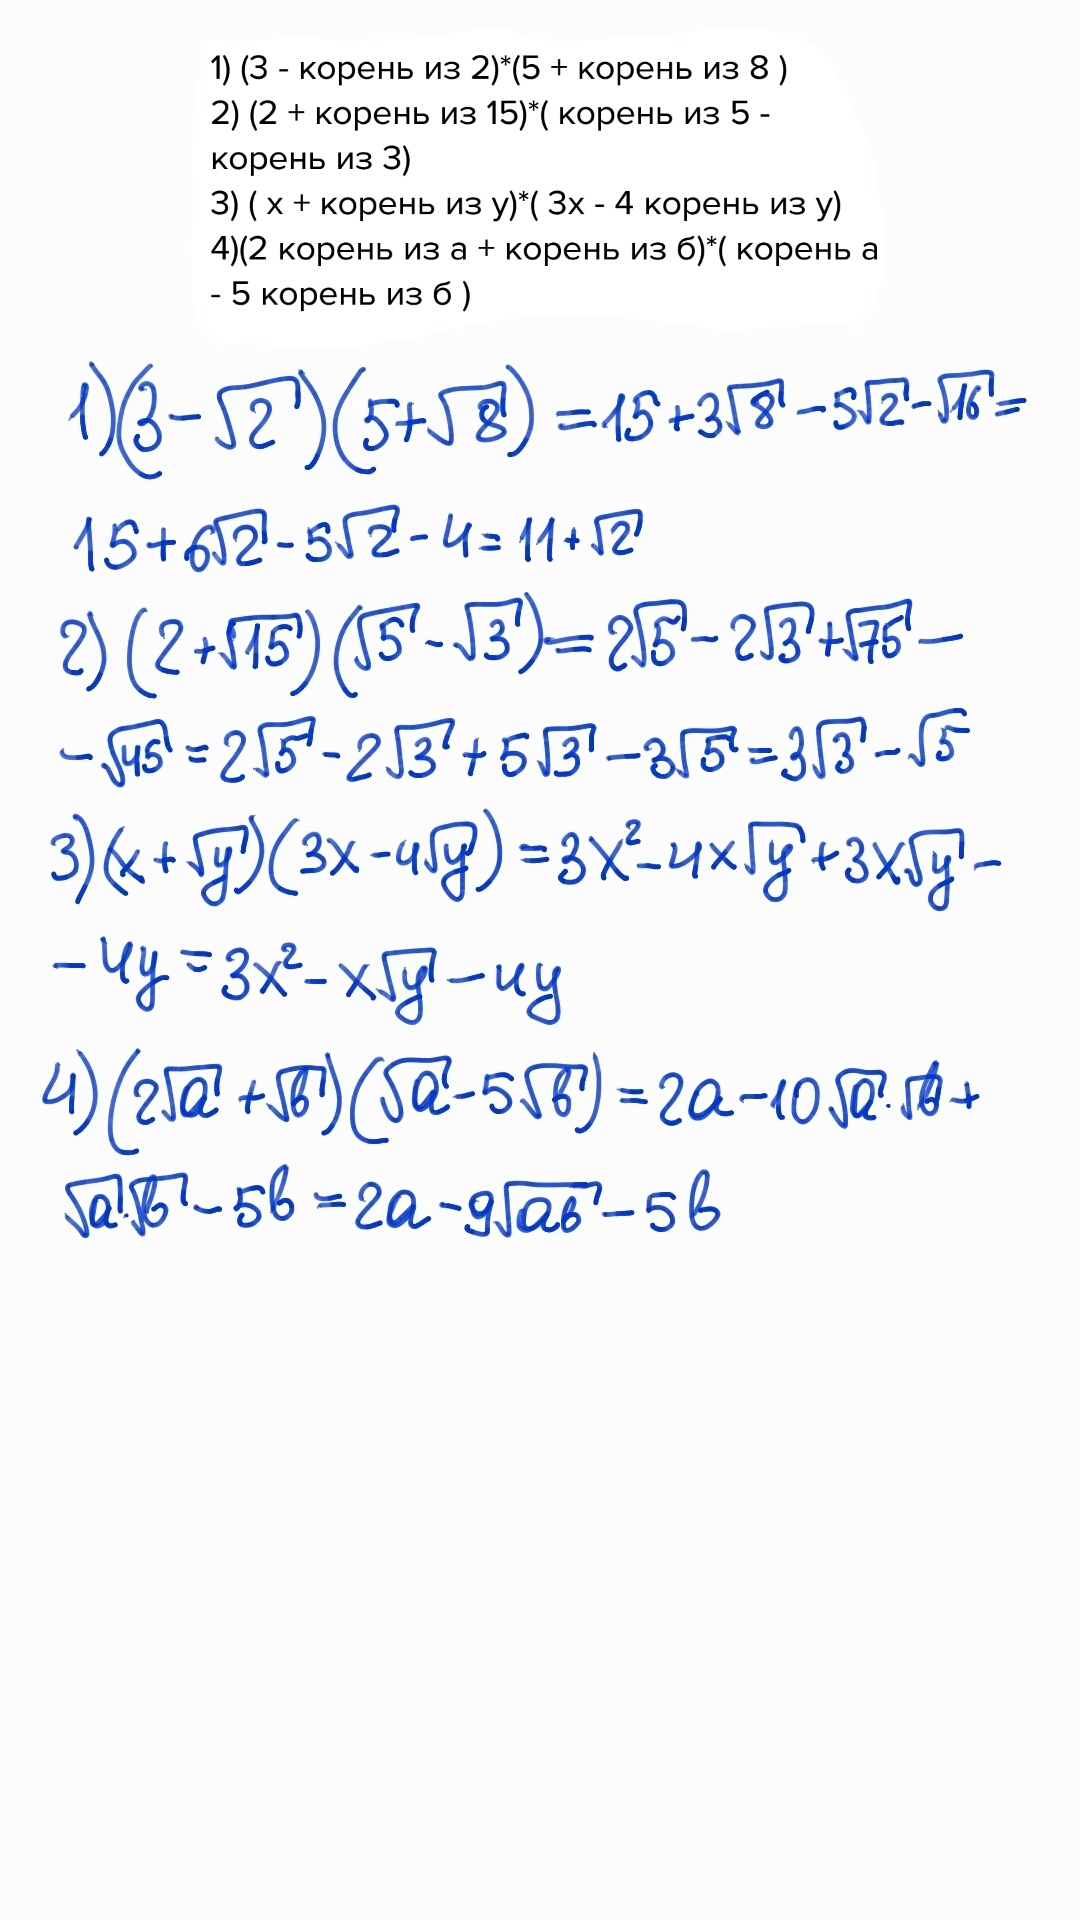 1) (3 - корень из 2)*(5 + корень из 8 )
2) (2 + корень из 15)*( корень из 5 -
корень из 3)
3) ( х + корень из у)*( 3х - 4 корень из у)
4)(2 корень из а + корень из б)*( корень а
- 5 корень из б )
1) (3 - √2)(5 + √8) = 15 + 3√8 - 5√2 - √16 =
15 + 6√2 - 5√2 - 4 = 11 + √2
2) (2 + √15)(√5 - √3) = 2√5 - 2√3 + √75 -
- √45 = 2√5 - 2√3 + 5√3 - 3√5 = 3√3 - √5
3) (x + √y)(3x - 4√y) = 3x² - 4x√y + 3x√y -
- 4y = 3x² - x√y - 4y
4) (2√a + √b)(√a - 5√b) = 2a - 10√a · √b +
√a · √b - 5b = 2a - 9√ab - 5b